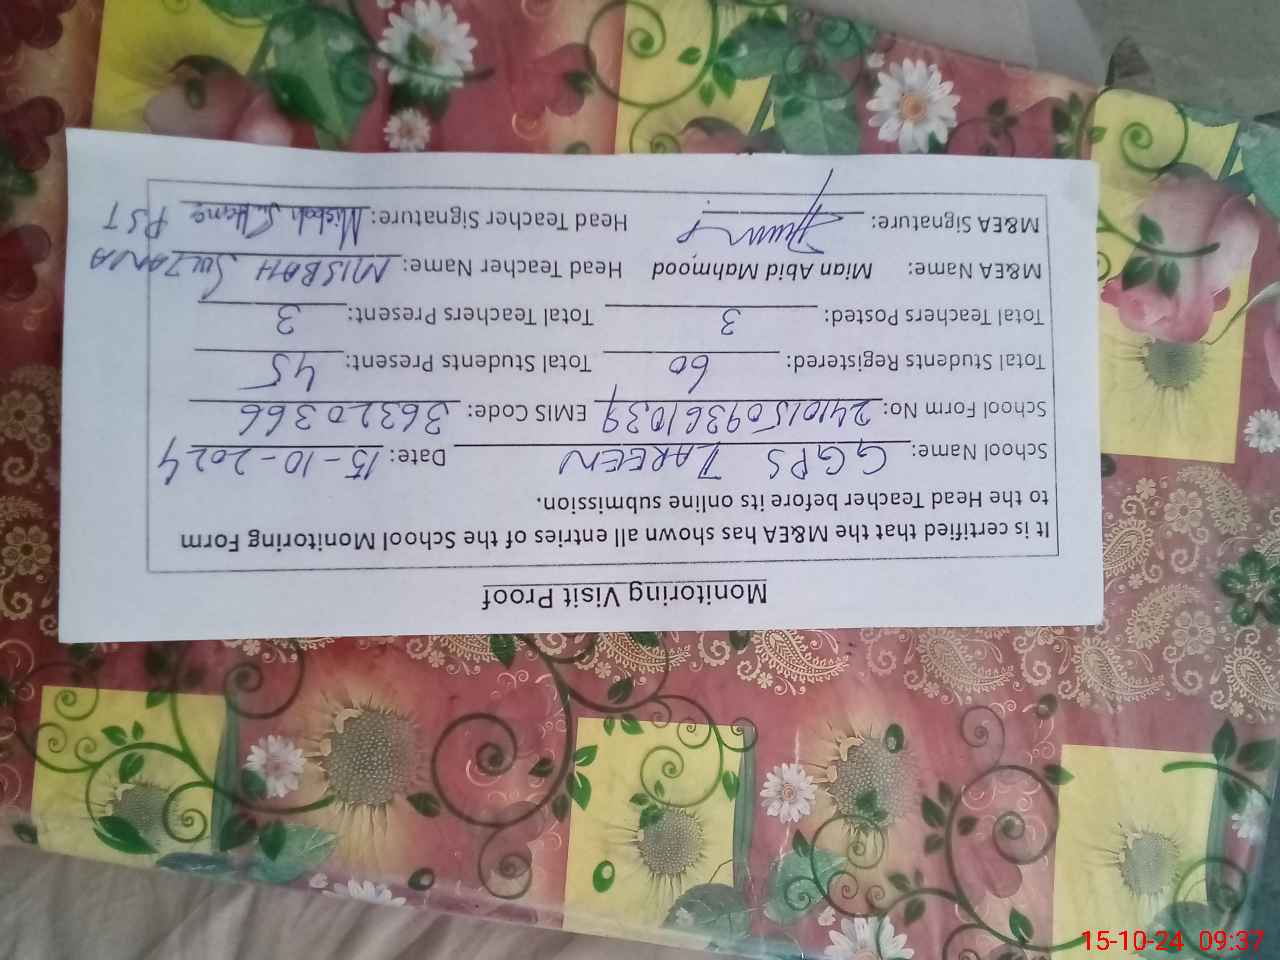 Monitoring Visit Proof
It is certified that the M&EA has shown all entries of the School Monitoring Form
to the Head Teacher before its online submission.
School Name: GGPS ZAREEN Date: 15-10-2024
School Form No: 24101509361039 EMIS Code: 36320366
Total Students Registered: 60 Total Students Present: 45
Total Teachers Posted: 3 Total Teachers Present: 3
M&EA Name: Mian Abid Mahmood Head Teacher Name: MISBAH SULTANA
M&EA Signature: Head Teacher Signature: Misbah Sultana PST
15-10-24 09:37